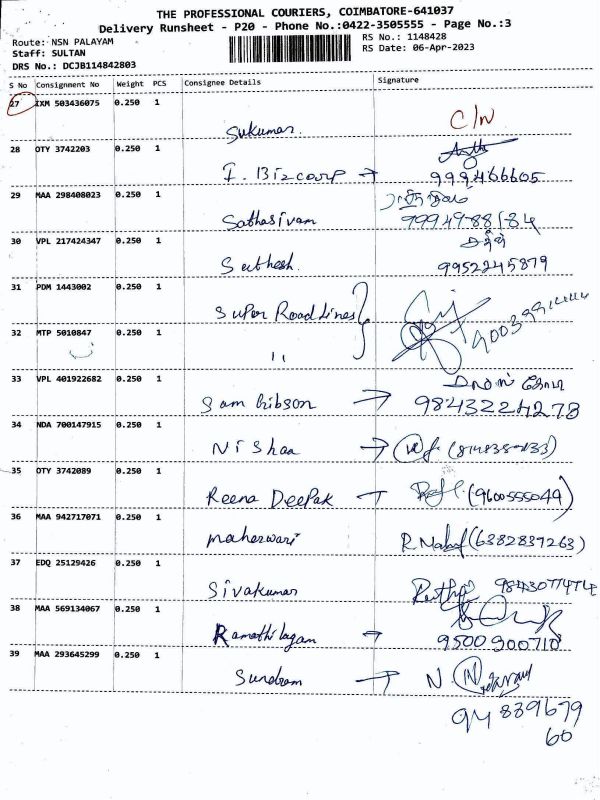 THE PROFESSIONAL COURIERS, COIMBATORE-641037
Delivery Runsheet - P20 - Phone No.:0422-3505555 - Page No.:3
Route: NSN PALAYAM
RS No.: 1148428
Staff: SULTAN
RS Date: 06-Apr-2023
DRS No.: DCJB114842803
S No Consignment No Weight PCS Consignee Details Signature
27 IXM 503436075 0.250 1
Sukumar. C/N
28 OTY 3742203 0.250 1
I. Bizcorp → 9994466605
29 MAA 298408023 0.250 1
Sathasivam 99949-88184
30 VPL 217424347 0.250 1
Suthesh. 9952245879
31 PDM 1443002 0.250 1
Super Road Lines
32 MTP 5010847 0.250 1
11
33 VPL 401922682 0.250 1
Sam Gibson → 9843224278
34 NDA 700147915 0.250 1
Nishaa →
35 OTY 3742089 0.250 1
Reena Deepak → (9600555049)
36 MAA 942717071 0.250 1
maheswari R. (6382837263)
37 EDQ 25129426 0.250 1
Sivakumar 9843077474
38 MAA 569134067 0.250 1
Ramathilagam → 9500900710
39 MAA 293645299 0.250 1
Sundram → N
94 839679
60